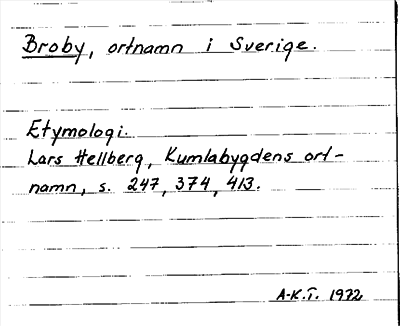 Broby, ortnamn i Sverige.
Etymologi.
Lars Hellberg, Kumlabygdens ort-
namn, s. 247, 374, 413.
A-K.T. 1972